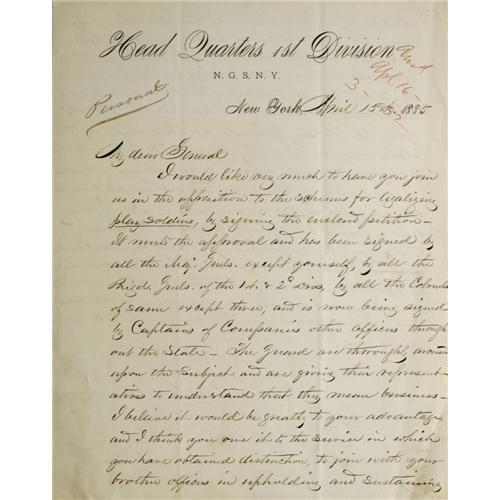 Head Quarters 1st Division
N.G.S.N.Y.
Ansd
Apl 16
3
Personal
New York, April 15th 1885
My dear General
I would like very much to have you join
us in the opposition to the scheme for legalizing
play soldiers, by signing the enclosed petition –
It meets the approval and has been signed by
all the Maj. Genls. except yourself, by all the
Brigd. Genls. of the 1st & 2d Divs, by all the Colonels
of same except three, and is now being signed
by Captains of Companies other officers through
out the State – The Guard are thoroughly aroused
upon the Subject and are giving their represent
atives to understand that they mean business –
I believe it would be greatly to your advantage
and I think you owe it to the Service in which
you have obtained distinction, to join with your
brother officers in upholding and sustaining